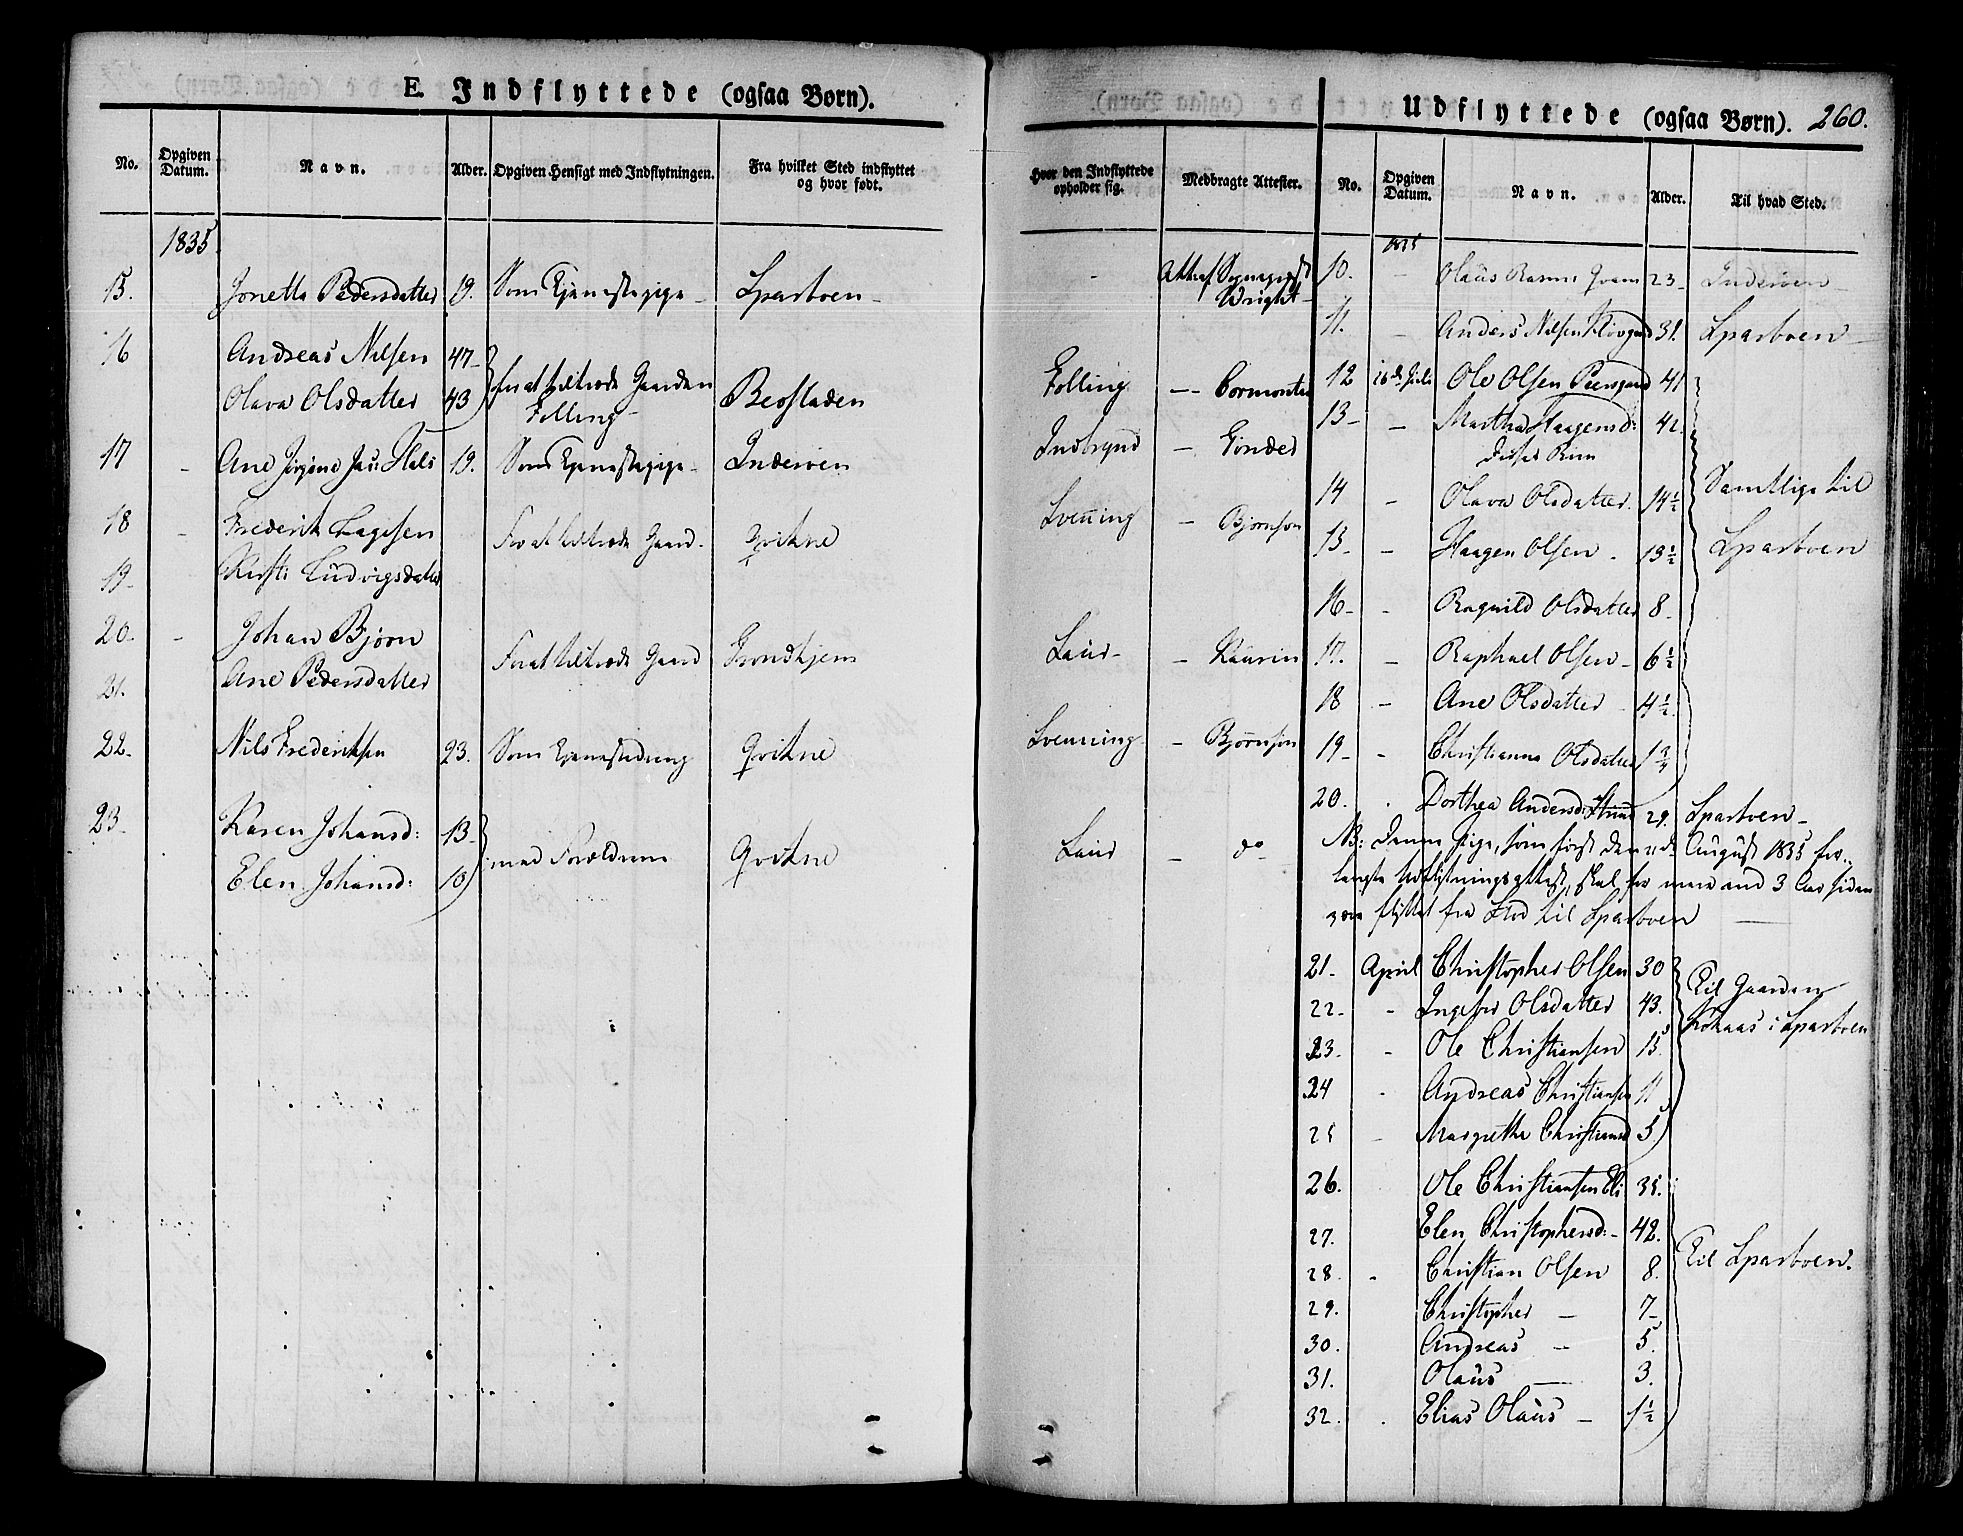 E Indflyttede (ogsaa Børn).
No. Opgiven Datum. Navn. Alder. Opgiven Hensigt med Indflytningen. Fra hvilket Sted indflyttet og hvor født.
1835
15. Jonetta Pedersdatter 19. Som Tjenestepige - Sparboen -
16 Andreas Nilsen 47 -
Olava Olsdatter 43 for at tiltræde Gaarden Følling - Beostaden
17 - Ane Jørgine Jac: Hals 19. Som Tjenestepige - Inderøen
18 - Frederik Lagesen For at tiltræde Gaard - Qvikne
19 - Kirsti Ludvigsdatter
20. - Johan Bjørn For at tiltræde Gaard Trondhjem
21. Ane Pedersdatter
22. Nils Frederiksen 23. Som Tjenestedreng Qvikne
23. Karen Johansd: 13 -
Elen Johansd: 10 med Forældrene Qvikne
Udflyttede (ogsaa Børn). 260.
Hvor den Indflyttede opholder sig. Medbragte Attester. No. Opgiven Datum. Navn. Alder. Til hvad Sted.
1835
- Att: af Sognepræst Wright - 10. - Olaus Rasmus Qvam 23 - Inderøen -
11. - Anders Nilsen 31. Sparboen -
Følling - Cormontan 12 16de Juli Ole Olsen 41
13 - - Martha Haagensd: 42.
Indbryn - Tønder
deres Børn
14 - Olava Olsdatter. 14½ Samtlige til
Svenning - Bjørnson
15 - - Haagen Olsen - 13½ Sparboen
16 - - Ragnild Olsdatter 8 -
Laur - - Kaurin 17. - Raphael Olsen - 6½
18 - Ane Olsdatter 4½
Svenning - Bjørnson 19 - - Christianna Olsdatter 1¾
20. . Dorthea Andersd: 29. Sparboen -
Laur - do
NB: Denne Pige, som først den August 1835 for-
langte Udflytningsattest, skal for mere end 3 Aar siden
være flyttet fra Stod til Sparboen -
21 - April Christopher Olsen 30 Til Gaarden
22 - - Ingebor Olsdatter 43. i Sparboen
23. - Ole Christiansen 15.
24 - Andreas Christiansen 11
25 - Margrethe Christiansd 5
26. Ole Christiansen Eli 35.
27. Elen Christophersd: - 42. Til Sparboen.
28. - Christian Olsen 8.
29. Christopher - 7 -
30. Andreas - 5.
31. Olaus - 3.
32. . Elias Olaus - 1½